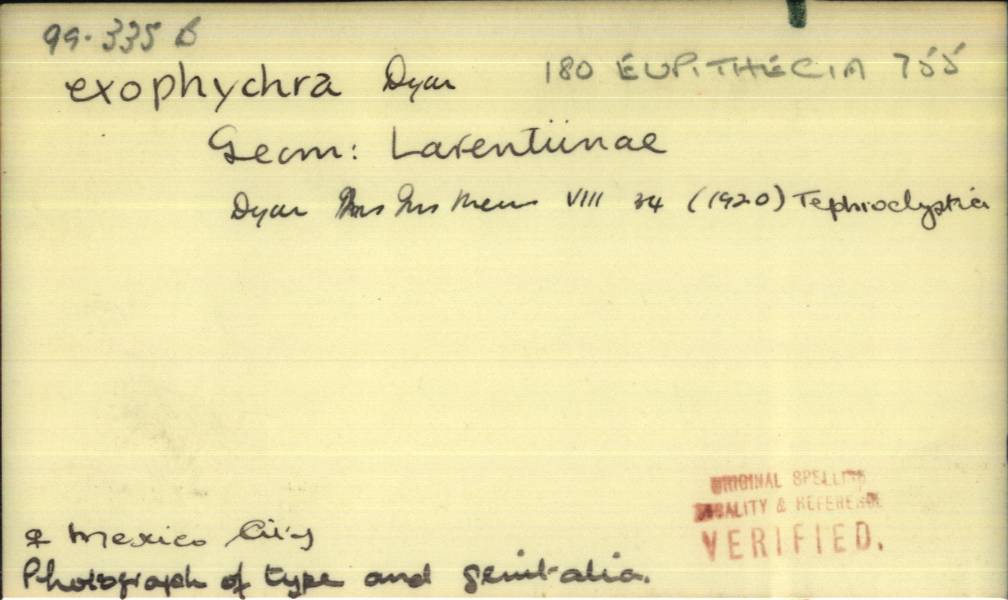 99.335 B
exophychra Dyar 180 EUPITHECIA 755
Geom: Larentiinae
Dyar Ins Ins Mens VIII 34 (1920) Tephroclystia
♀ Mexico City
Photograph of type and genitalia.
ORIGINAL SPELLING
LOCALITY & REFERENCE
VERIFIED.